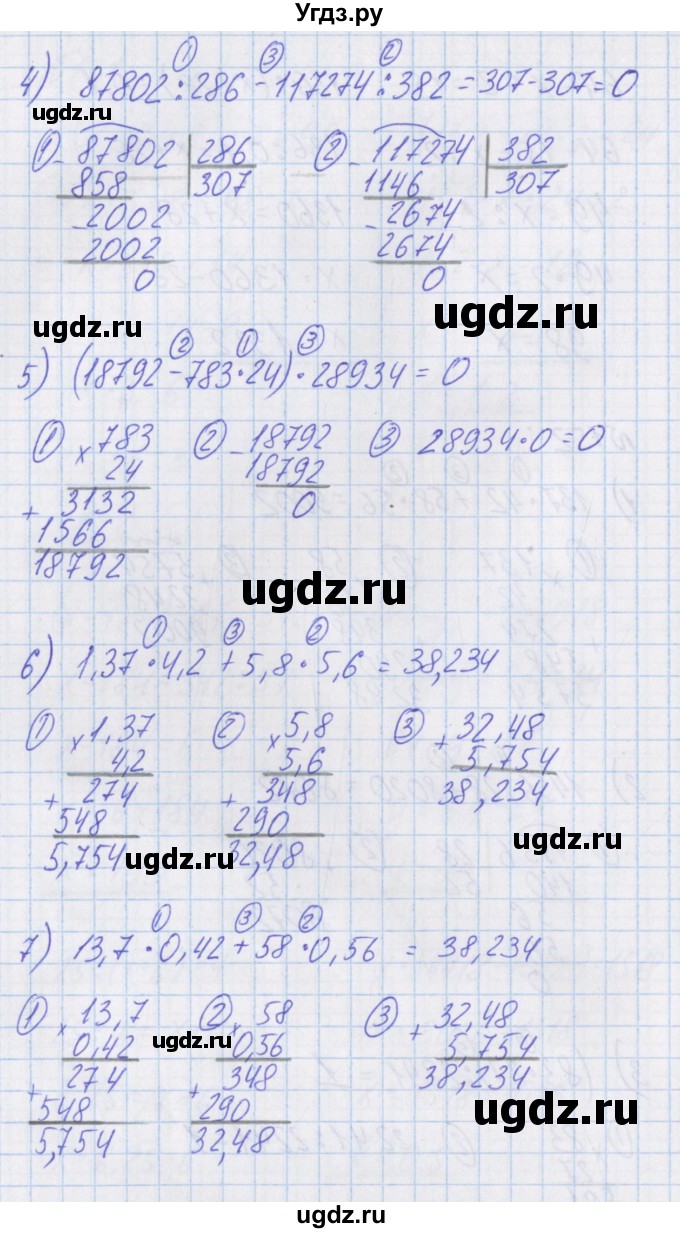 Угдз.ру
① ③ ②
4) 87802 : 286 - 117274 : 382 = 307 - 307 = 0
ugdz.ru
① - 87802 | 286 ② - 117274 | 382
858 307 1146 307
- 2002 - 2674
2002 2674
0 0
ugdz.ru
ugdz.ru
② ① ③
5) (18792 - 783 · 24) · 28934 = 0
① × 783 ② - 18792 ③ 28934 · 0 = 0
24 18792
+ 3132 0
1566
18792
ugdz.ru
① ③ ②
6) 1,37 · 4,2 + 5,8 · 5,6 = 38,234
① × 1,37 ② × 5,8 ③ + 32,48
4,2 5,6 5,754
+ 274 + 348 38,234
548 290
5,754 32,48
ugdz.ru
ugdz.ru
① ③ ②
7) 13,7 · 0,42 + 58 · 0,56 = 38,234
① × 13,7 ② × 58 ③ + 32,48
0,42 0,56 5,754
ugdz.ru
+ 274 + 348 38,234
548 290
5,754 32,48
ugdz.ru
ugdz.ru